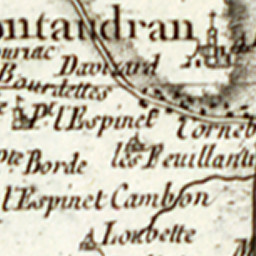 ontaudran
ouriac Davizard
Bourdettes
Pt. l'Espinet Corneb
pte. Borde les Feuillanti
l'Espinet Cambon
Loubette
M